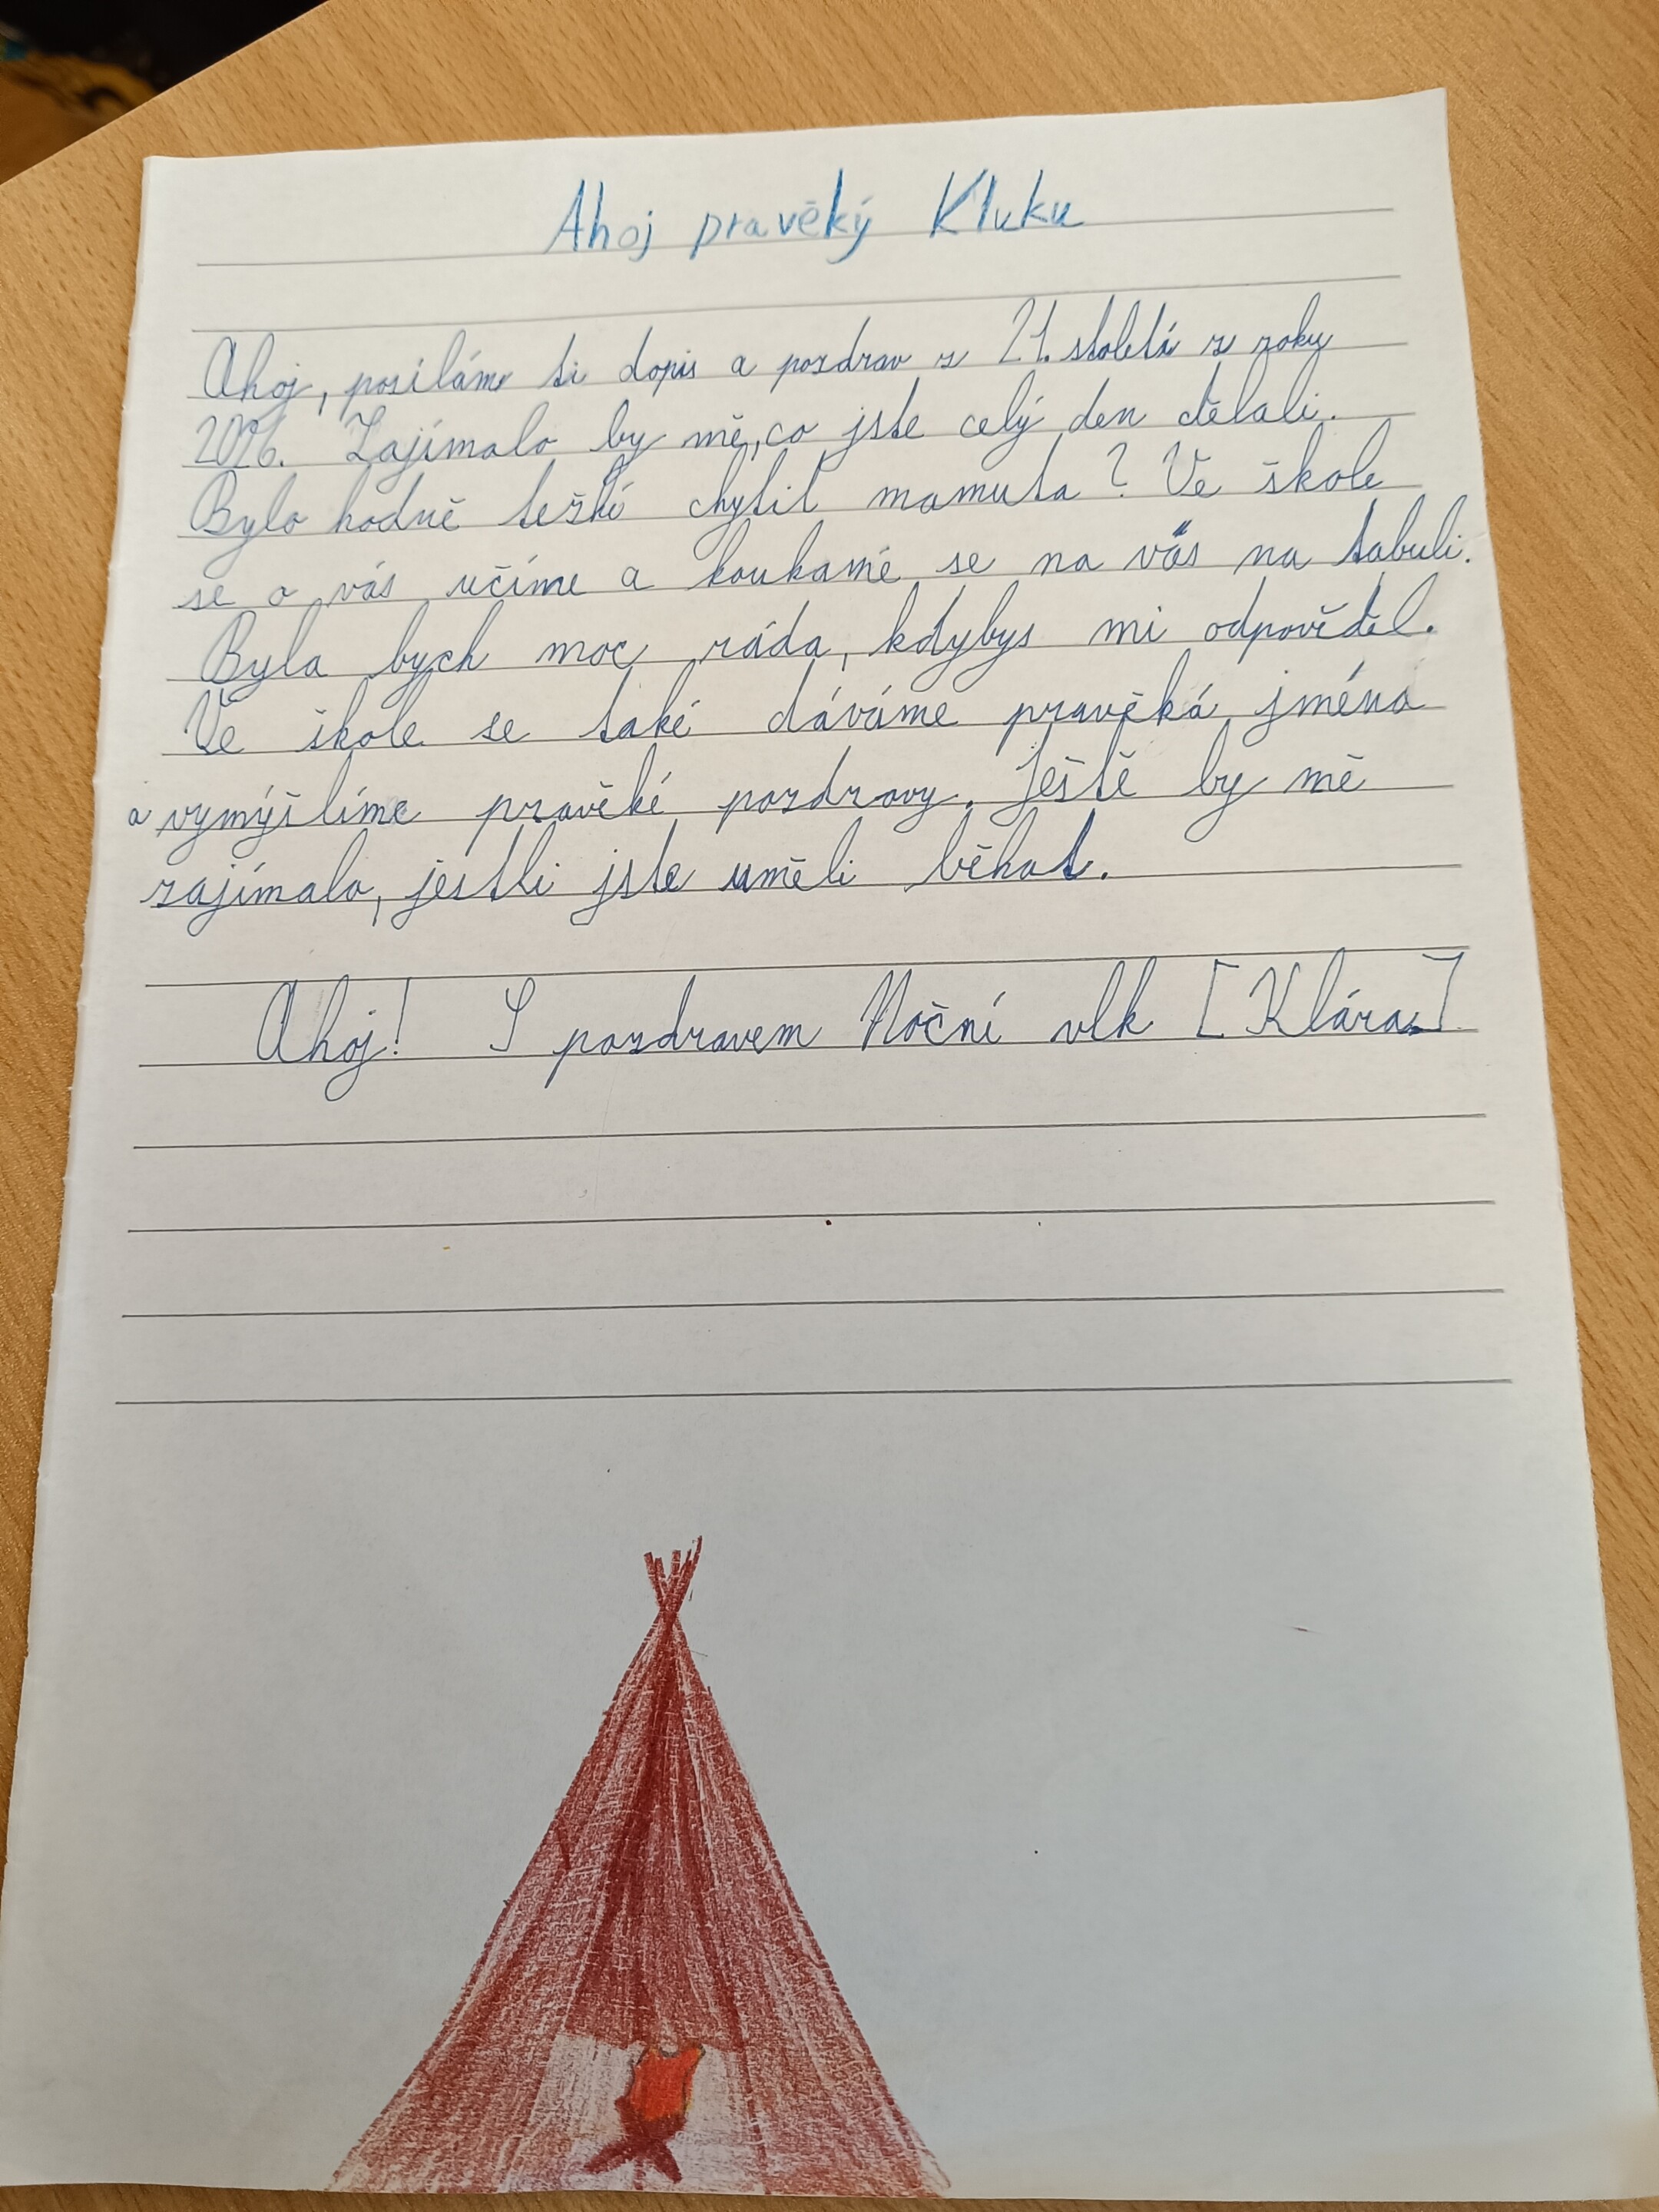 Ahoj pravěký Kluku
Ahoj, posílám ti dopis a pozdrav z 21. století z roku
2026. Zajímalo by mě, co jste celý den dělali.
Bylo hodně težké chytit mamuta? Ve škole
se o vás učíme a koukamé se na vás na tabuli.
Byla bych moc ráda, kdybys mi odpověděl.
Ve škole se také dáváme pravěká jména
a vymýšlíme pravěké pozdravy. Ještě by mě
zajímalo, jestli jste uměli běhat.
Ahoj! S pozdravem Noční vlk [Klára]